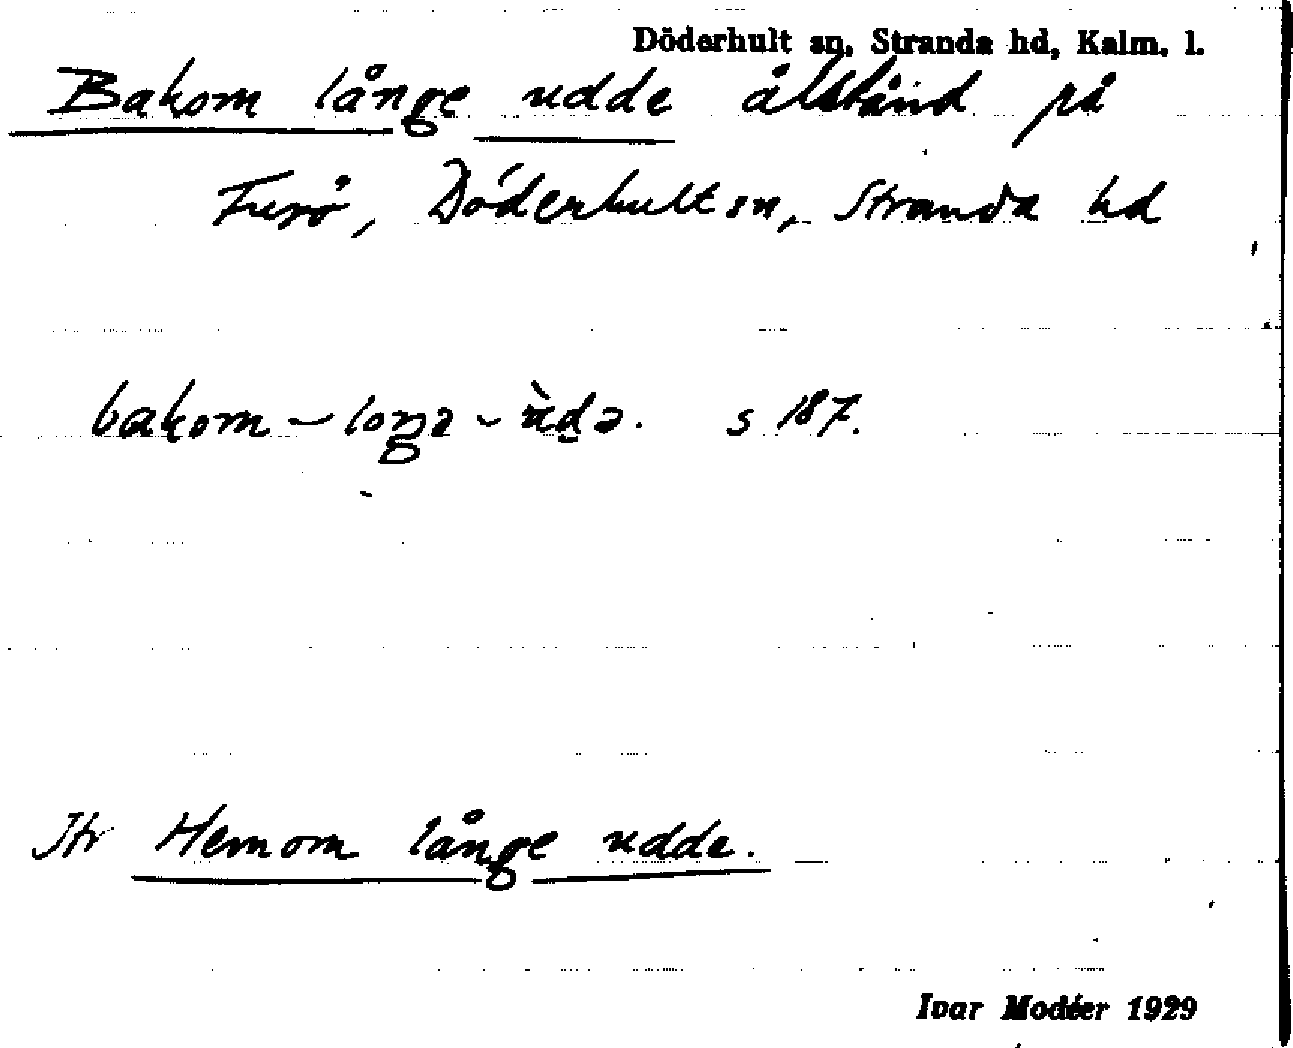 Döderhult sn, Stranda hd, Kalm. l.
Bakom långe udde ålstånd på
Furö, Döderhult sn, Stranda hd
bakom - loŋə - ùdə. s 187.
Jfr Hemom långe udde.
Ivar Modéer 1929